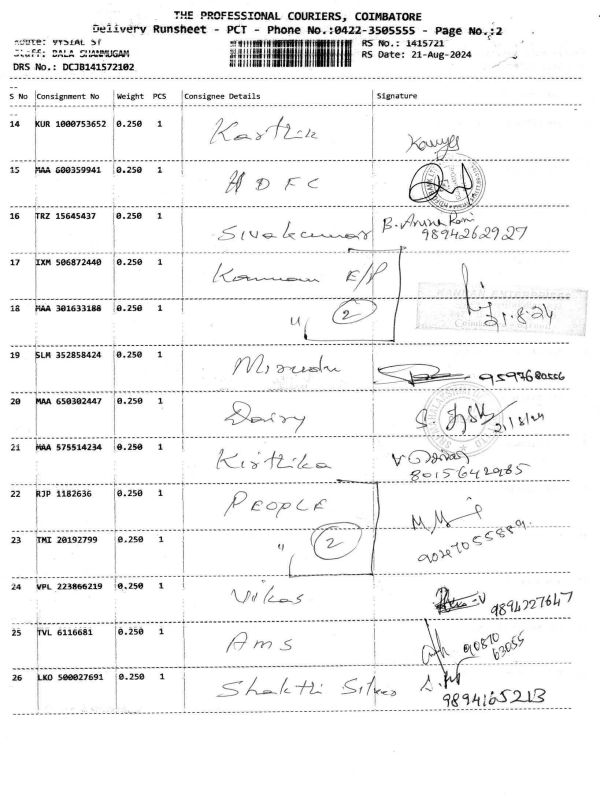 THE PROFESSIONAL COURIERS, COIMBATORE
Delivery Runsheet - PCT - Phone No.:0422-3505555 - Page No.:2
RS No.: 1415721
Staff: BALA SHANMUGAM RS Date: 21-Aug-2024
DRS No.: DCJB141572102
S No Consignment No Weight PCS Consignee Details Signature
14 KUR 1000753652 0.250 1 Karthik
15 MAA 600359941 0.250 1 HDFC
16 TRZ 15645437 0.250 1 Sivakumar B. Aruna Rani
9894262927
17 IXM 506872440 0.250 1 Kannan E/P
18 MAA 301633188 0.250 1 " 2 21.8.24
19 SLM 352858424 0.250 1 Mirudu 9597680556
20 MAA 650302447 0.250 1 Dairy 21/8/24
21 MAA 575514234 0.250 1 Kirthika
8015642985
22 RJP 1182636 0.250 1 PEOPLE
23 TMI 20192799 0.250 1 " 2 9024705588 9
24 VPL 223866219 0.250 1 Vikas 9894227647
25 TVL 6116681 0.250 1 Ams 90870
63055
26 LKO 500027691 0.250 1 Shakthi Silver
9894165213